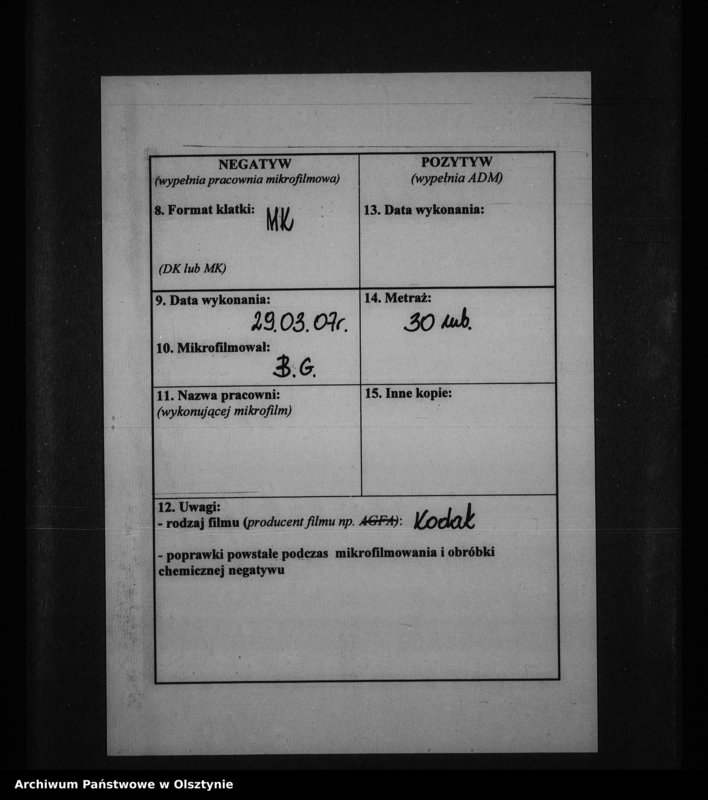 NEGATYW
(wypełnia pracownia mikrofilmowa)
8. Format klatki: MK
(DK lub MK)
POZYTYW
(wypełnia ADM)
13. Data wykonania:
9. Data wykonania:
29.03.07r.
10. Mikrofilmował:
B.G.
14. Metraż:
30 mb.
11. Nazwa pracowni:
(wykonującej mikrofilm)
15. Inne kopie:
12. Uwagi:
- rodzaj filmu (producent filmu np. AGFA): Kodak
- poprawki powstałe podczas mikrofilmowania i obróbki
chemicznej negatywu
Archiwum Państwowe w Olsztynie